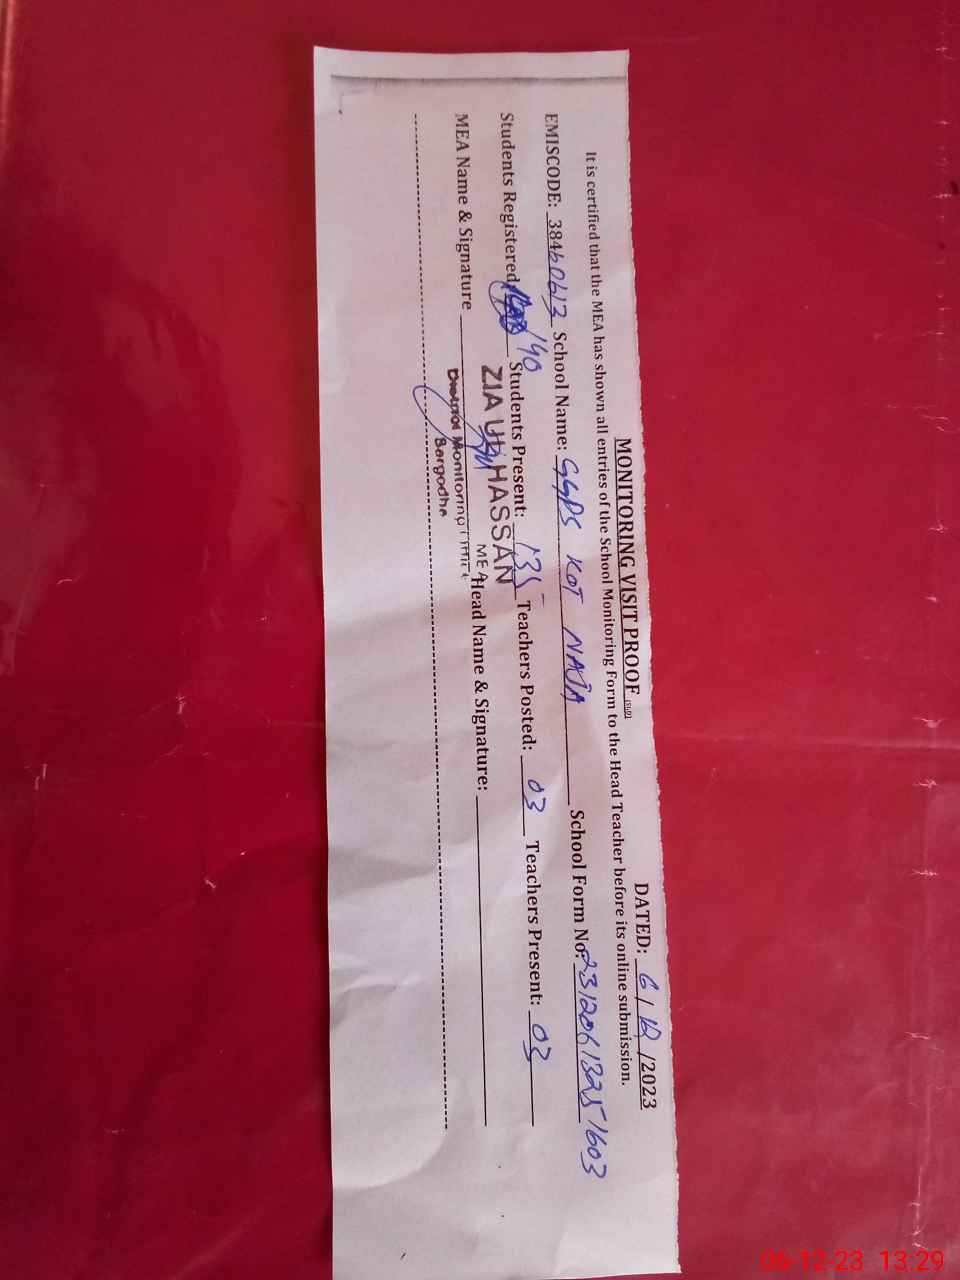 MONITORING VISIT PROOF (SLIP) DATED: 6 / 12 /2023
It is certified that the MEA has shown all entries of the School Monitoring Form to the Head Teacher before its online submission.
EMISCODE: 38460613 School Name: GGPS KOT NAJA School Form No: 23120613251603
Students Registered 140 Students Present: 135 Teachers Posted: 03 Teachers Present: 03
ZIA UL HASSAN
MEA
MEA Name & Signature Head Name & Signature:
District Monitoring Office
Sargodha
06-12-23 13:29